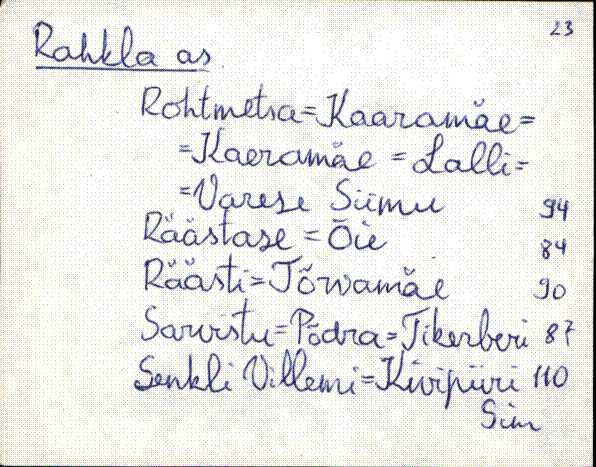 23
Rahkla as
Rohtmetsa = Kaaramäe =
= Kaeramäe = Lalli =
= Varese Siimu 94
Räästase = Õie 84
Räästi = Tõrvamäe 90
Sarvistu = Põdra = Tikerberi 87
Senkli Villemi = Kivipiiri 110
Sim